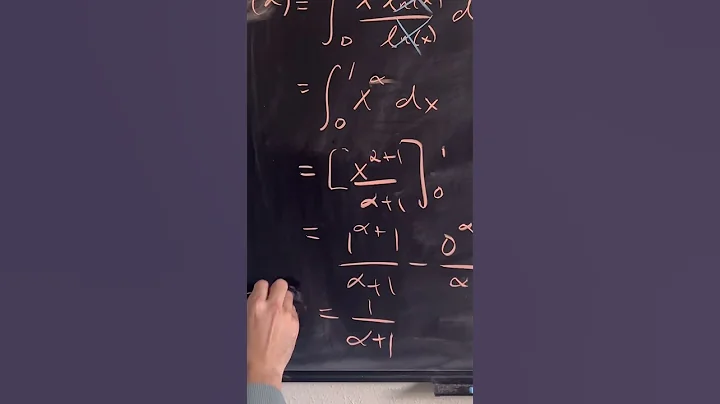 (α) = ∫₀ x^α ln(x) / ln(x) d
= ∫₀¹ x^α dx
= [x^(2+1) / α+1]₀¹
= 1^(α+1) / α+1 − 0^α / α
= 1 / α+1